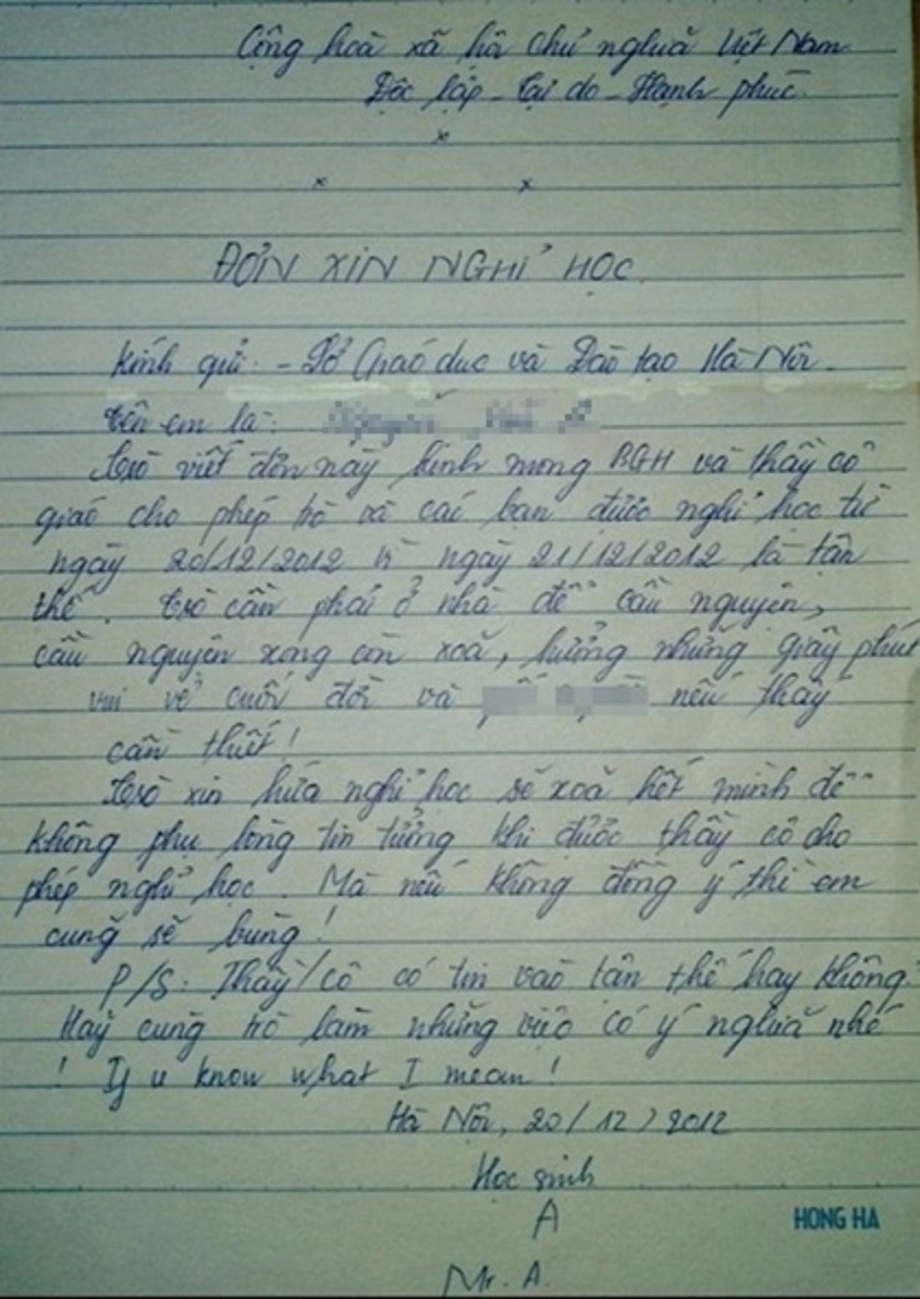 Cộng hoà xã hôi chủ nghĩa Việt Nam
Độc lập - Tự do - Hạnh phúc
x
x x
ĐƠN XIN NGHỈ HỌC
Kính gửi: - Sở Giaó dục và Đào tạo Hà Nôi.
Tên em là:
Trò viết đơn này kính mong BGH và thầy cô
giaó cho phép trò và các bạn được nghỉ học từ
ngày 20/12/2012 vì ngày 21/12/2012 là tận
thế. Trò cần phải ở nhà để cầu nguyện,
cầu nguyện xong còn xoã, hưởng những giây phút
vui vẻ cuối đời và nếu thấy
cần thiết!
Trò xin hứa nghỉ học sẽ xoã hết mình để
không phụ lòng tin tưởng khi được thầy cô cho
phép nghỉ học. Mà nếu không đồng ý thì em
cũng sẽ bùng!
P/S: Thầy/Cô có tin vào tận thế hay không?
Hãy cùng trò làm những việc có ý nghĩa nhé
! If u know what I mean!
Hà Nôi, 20/12/2012
Học sinh
A
Mr. A.
HONG HA